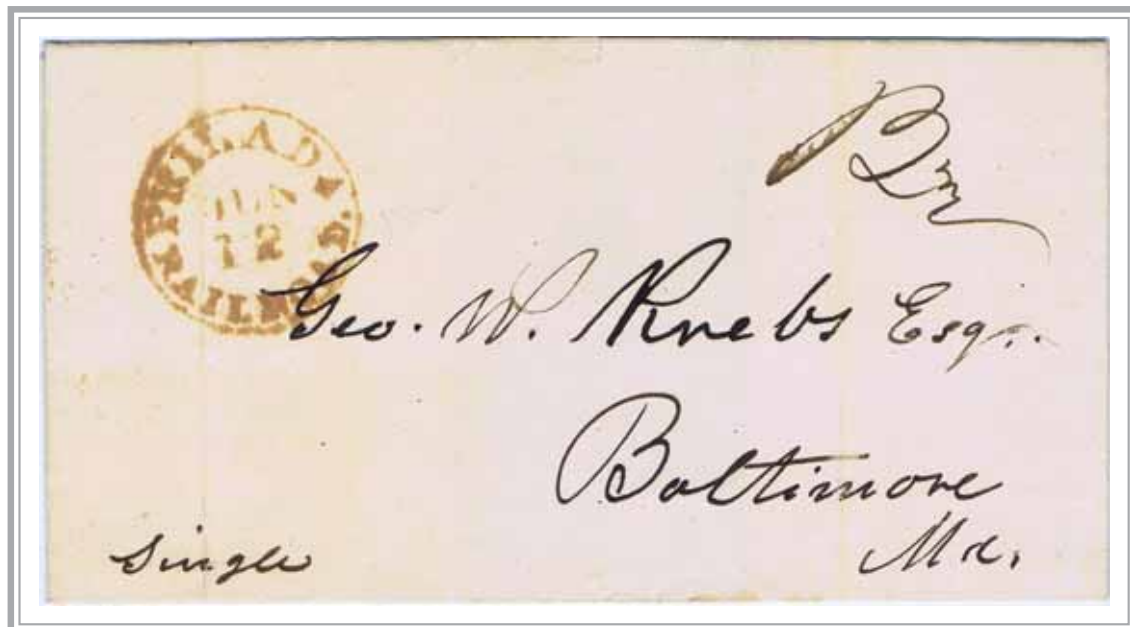 PHILADA
RAILROAD.
JUN
12
Geo. W. Krebs Esqr.
Baltimore
Md.
Single